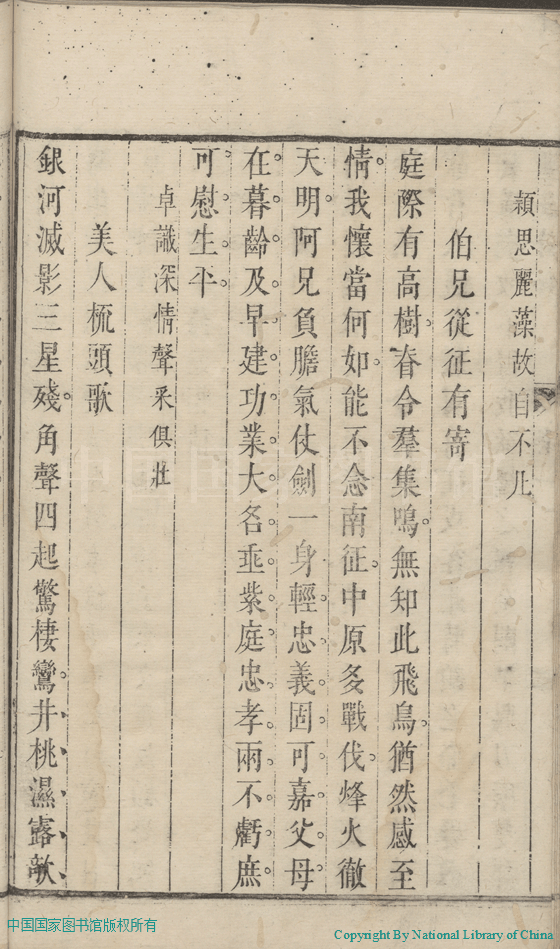 穎思麗藻故自不凡
伯兄從征有寄
庭際有高樹脊令羣集鳴無知此飛鳥猶然感至
情我懷當何如能不念南征中原多戰伐烽火徹
天明阿兄負膽氣仗劍一身輕忠義固可嘉父母
在暮齡及早建功業大名垂紫庭忠孝兩不虧庶
可慰生平
卓識深情聲采俱壯
美人梳頭歌
銀河滅影三星殘角聲四起驚棲鸞井桃濕露欹
中国国家图书馆版权所有
Copyright By National Library of China